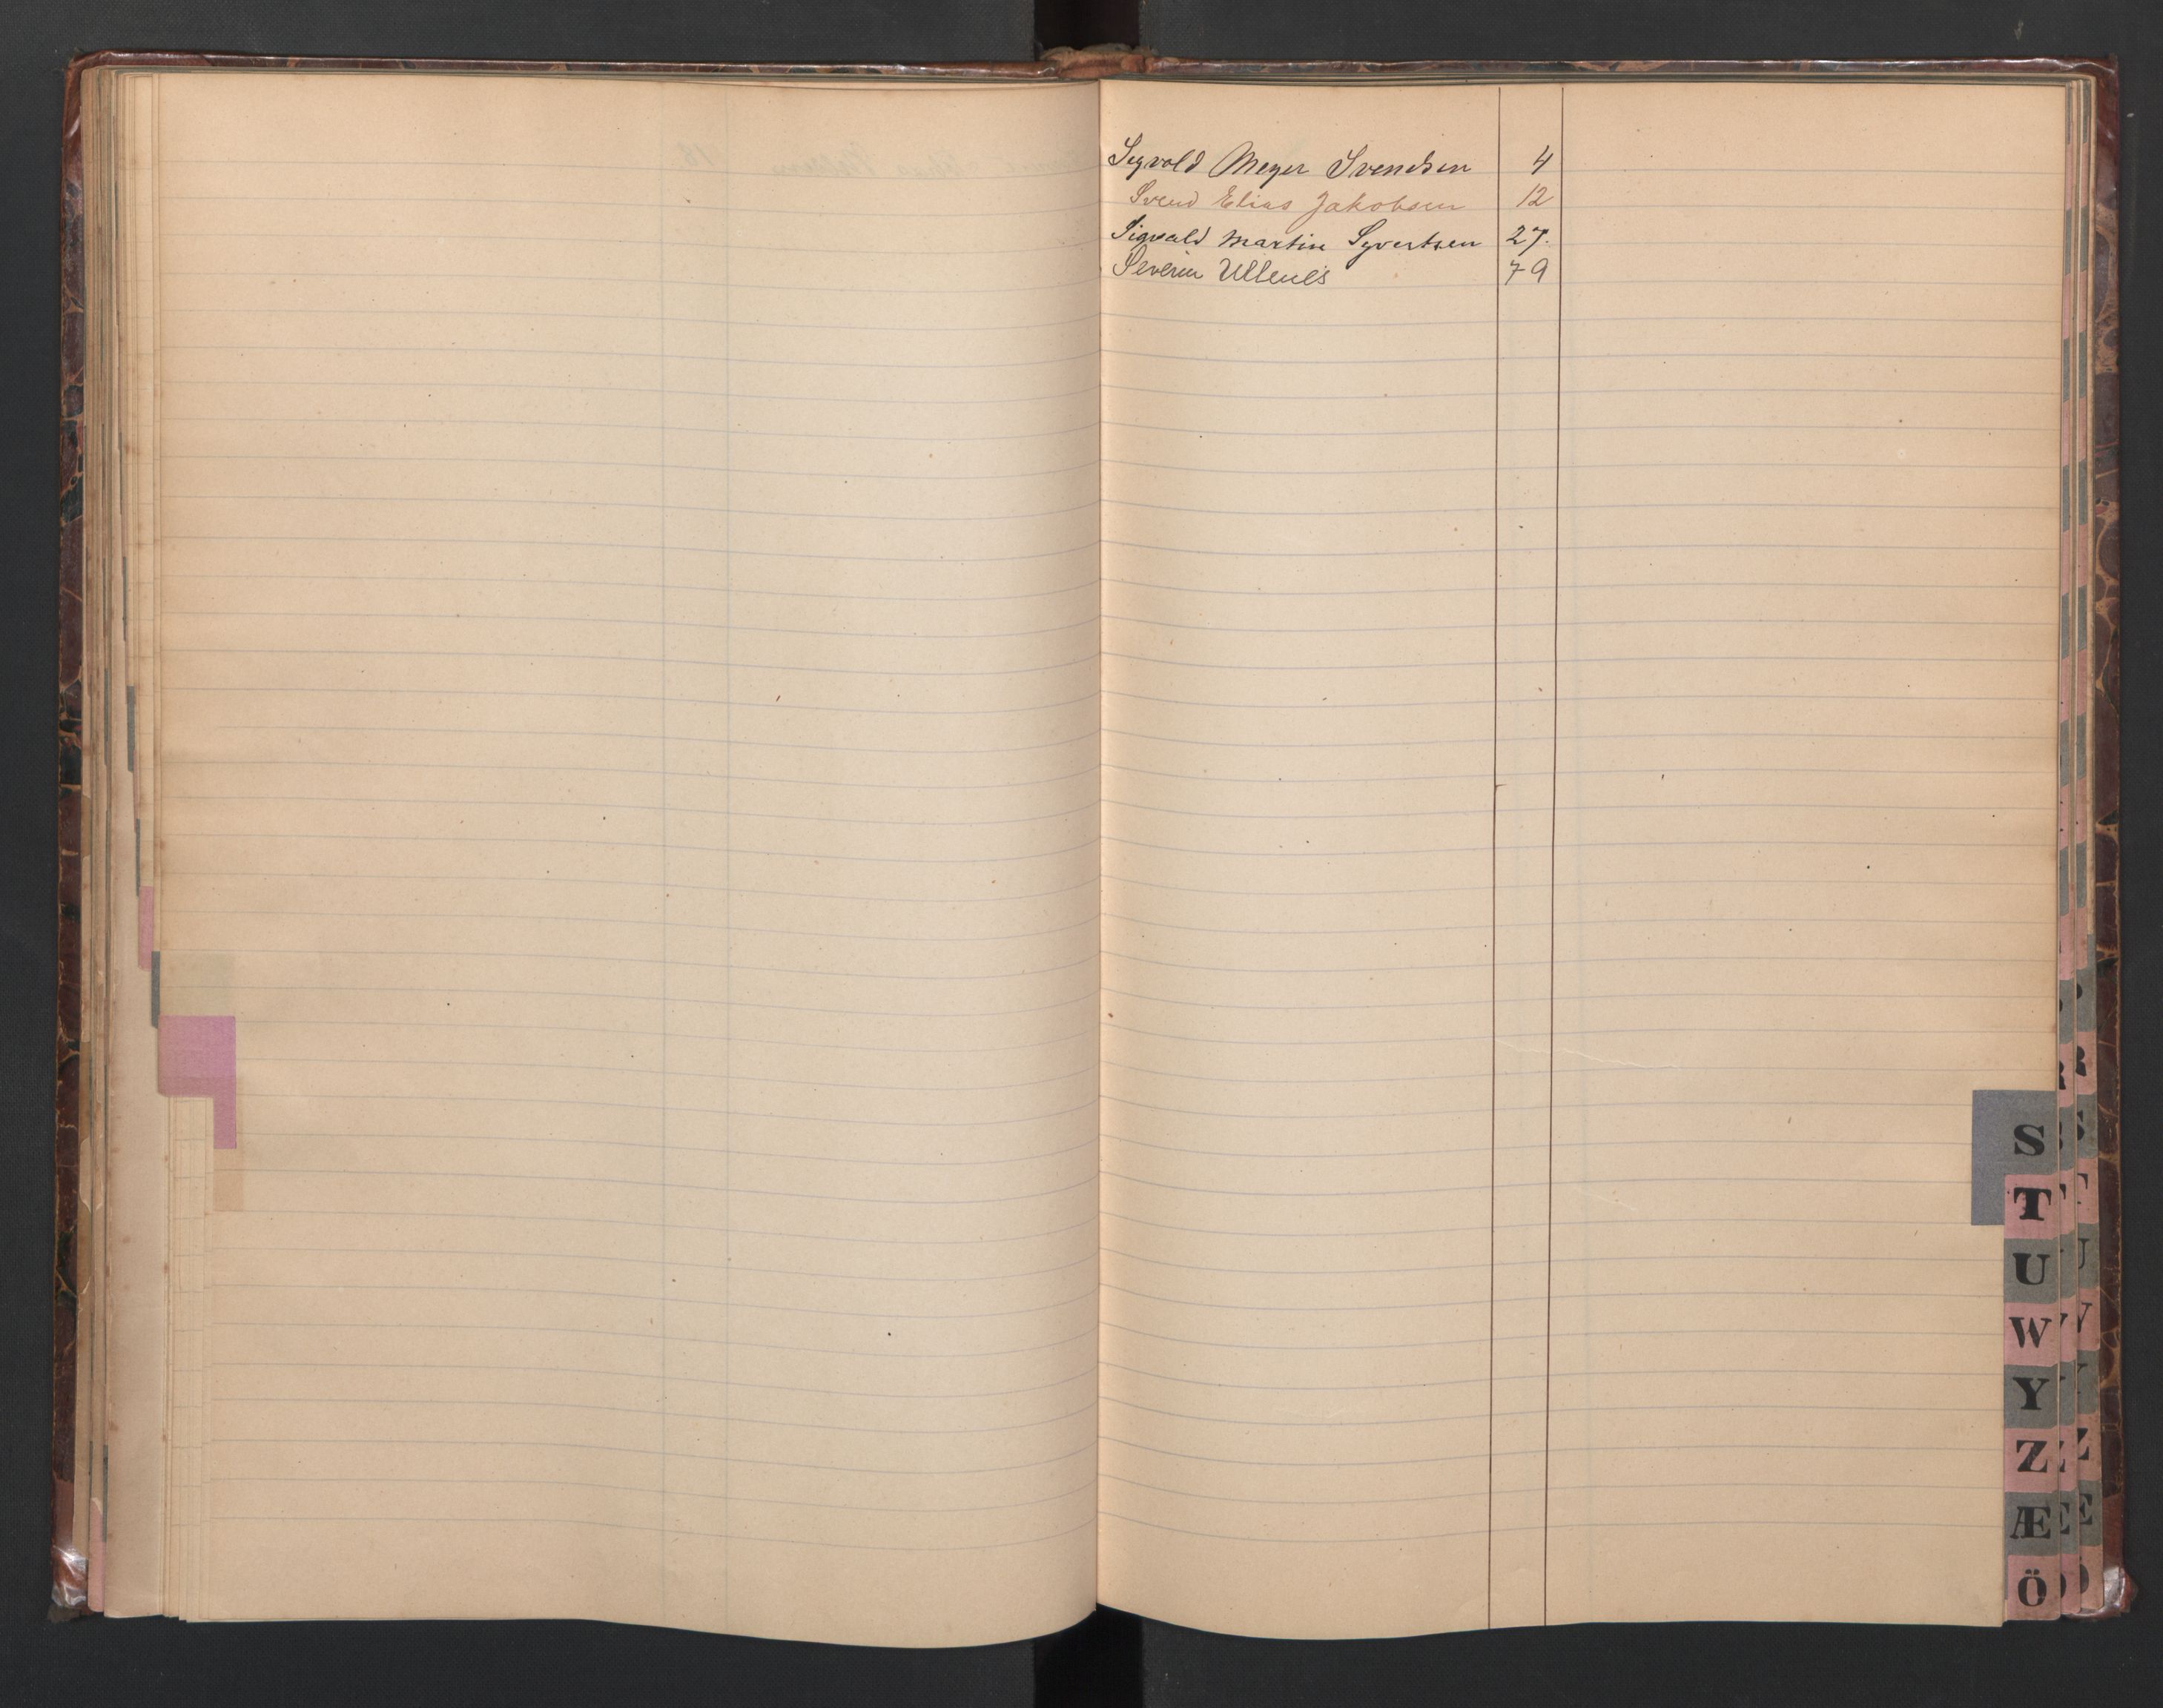 Sigvald Meyer Svendsen 4
Svend Elias Jakobsen 12
Sigvald Martin Syvertsen 27.
Severin Ullenes 79
S
T
U
W
Y
Z
Æ
Ö